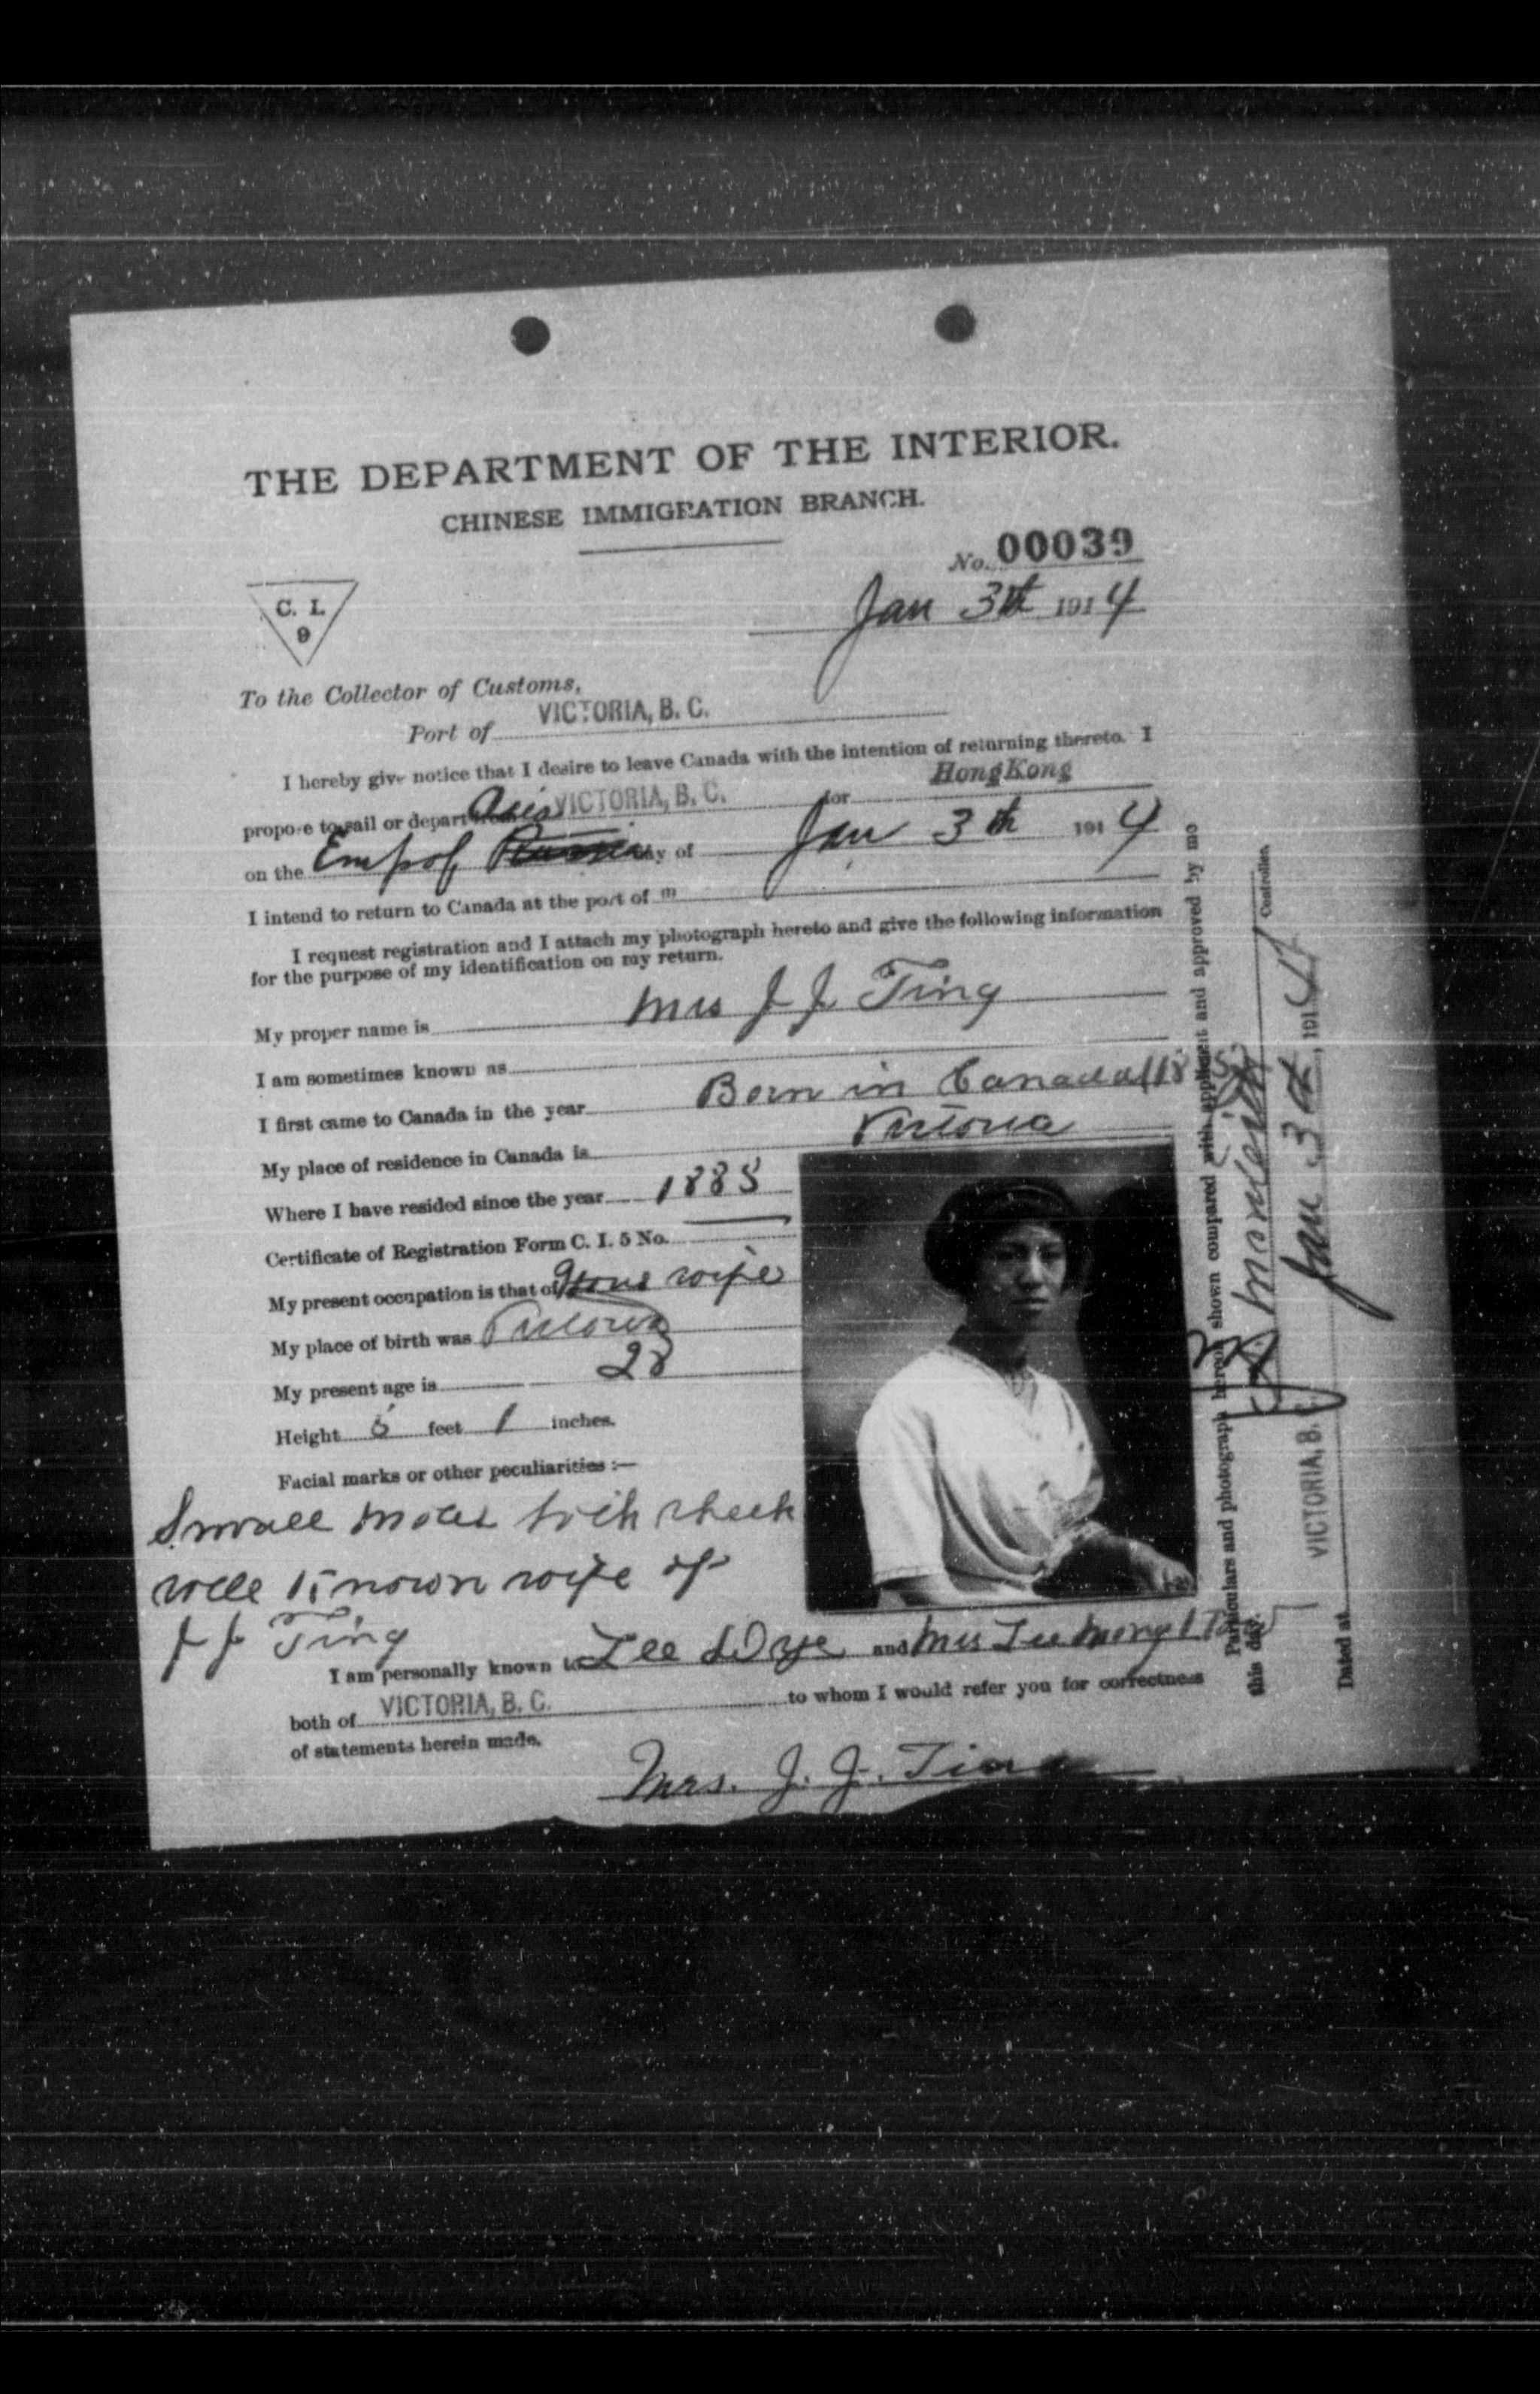 THE DEPARTMENT OF THE INTERIOR.
CHINESE IMMIGRATION BRANCH.
No. 00039
Jan 3th 1914
C. I.
9
To the Collector of Customs,
Port of VICTORIA, B. C.
I hereby give notice that I desire to leave Canada with the intention of returning thereto. I
propose to sail or depart from VICTORIA, B. C. for HongKong
Asia
on the Emp of Russia day of Jan 3th 1914
I intend to return to Canada at the port of
I request registration and I attach my photograph hereto and give the following information
for the purpose of my identification on my return.
My proper name is Mrs J J Ting
I am sometimes known as
I first came to Canada in the year Born in Canada
My place of residence in Canada is Victoria
Where I have resided since the year 1885
Certificate of Registration Form C. I. 5 No.
My present occupation is that of wife
My place of birth was Victoria
My present age is 28
Height 5 feet 1 inches.
Facial marks or other peculiarities :—
Small moles cheek
well known wife of
J J Ting
I am personally known to Lee Dye and Mrs Lee Mong
both of VICTORIA, B. C. to whom I would refer you for correctness
of statements herein made.
Mrs. J. J. Ting
Particulars and photograph hereon shown compared with applicant and approved by me
this day.
Controller.
Dated at VICTORIA, B. Jan 3th, 1914